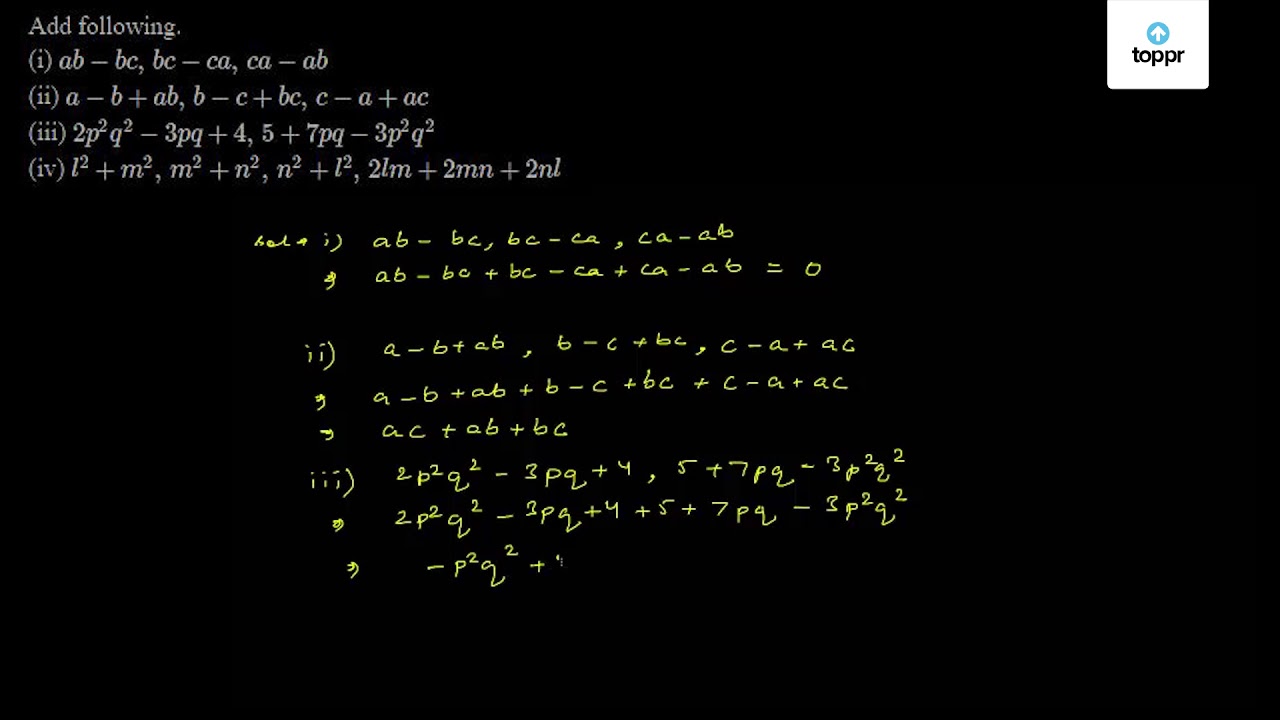 Add following.
toppr
(i) ab − bc, bc − ca, ca − ab
(ii) a − b + ab, b − c + bc, c − a + ac
(iii) 2p²q² − 3pq + 4, 5 + 7pq − 3p²q²
(iv) l² + m², m² + n², n² + l², 2lm + 2mn + 2nl
i) ab − bc, bc − ca, ca − ab
⇒ ab − bc + bc − ca + ca − ab = 0
ii) a − b + ab, b − c + bc, c − a + ac
⇒ a − b + ab + b − c + bc + c − a + ac
⇒ ac + ab + bc
iii) 2p²q² − 3pq + 4, 5 + 7pq − 3p²q²
⇒ 2p²q² − 3pq + 4 + 5 + 7pq − 3p²q²
⇒ − p²q² +